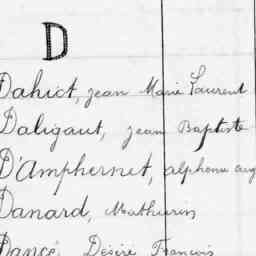 D
Dahiot, jean Marie Laurent
Daligaut, jean Baptiste
D'Amphernet, alphonse aug
Danard, Mathurin
Dancé, Désiré François